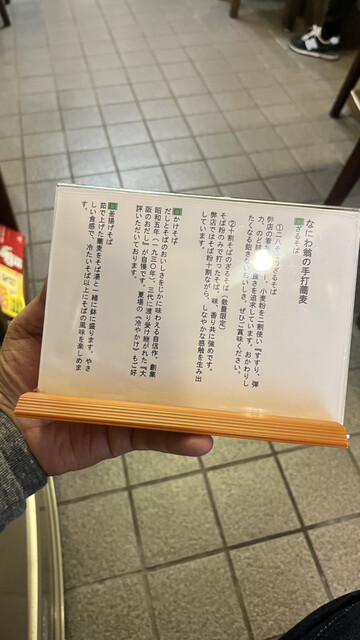 なにわ翁の手打蕎麦
ざるそば
①二八そばの
弊店の蕎麦 小麦粉を二割使い『すすり、弾
力、のど越
たくなる飽きないおいしさ、ぜひご賞味ください。
②十割そばのざるそば（数量限定）
そば粉のみで打ったそば。味、香り共に強めです。
弊店ではそば粉十割ながら、しなやかな感触を生み出
しています。
かけそば
だしとそばのおいしさをじかに味わえる自信作。創業
昭和五年（一九三〇年）、三代に渡り受け継がれた『大
阪のおだし』が自慢です。 夏場の《冷やかけ》もご好
評いただいております。
釜揚げそば
茹で上げた蕎麦をそば湯と一緒に鉢に盛ります。やさ
しい食感で、冷たいそば以上にそばの風味を楽しめま
す。